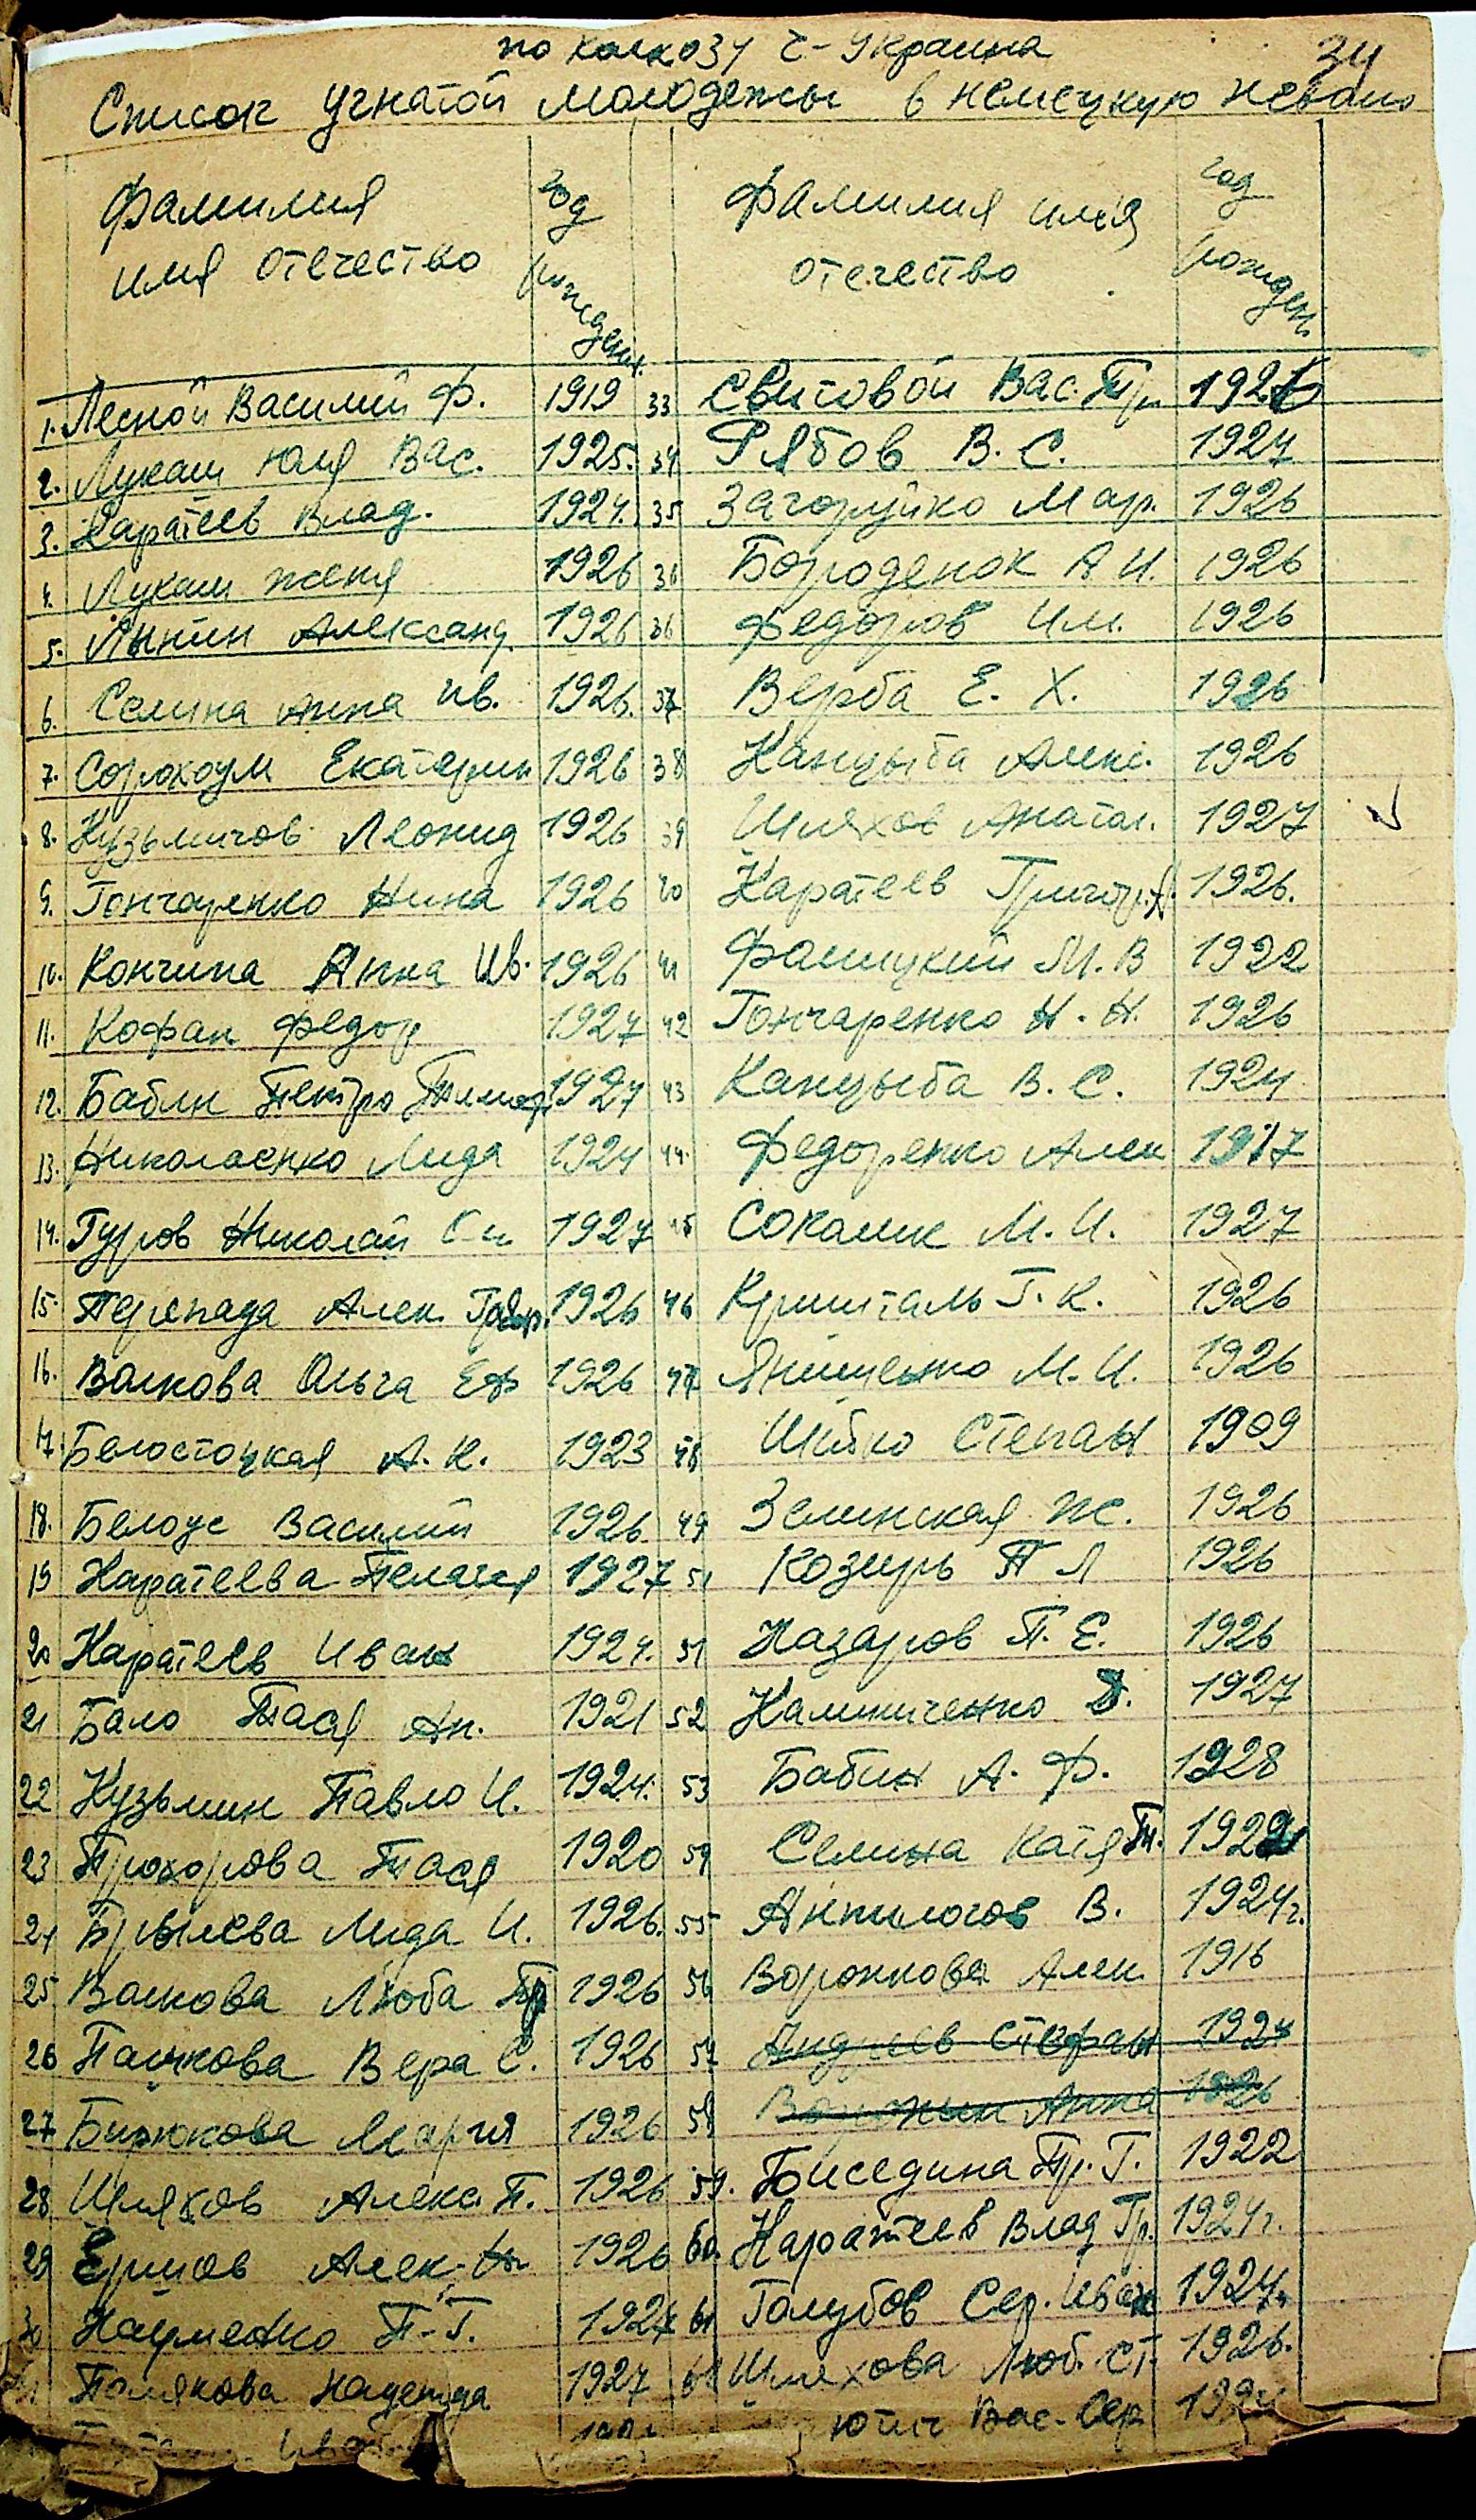 по колхозу Ч-Украина
34
Список угнатой молодежы в немецкую неволю
Фамилия имя отечество год рожден. Фамилия имя отечество год рожден.
1. Лесной Василий Ф. 1919 33 Свитовой Вас. Гр. 1926
2. Лукаш Юля Вас. 1925. 34 Рябов В. С. 1924
3. Каратеев Влад. 1924. 35 Загоруйко Мар. 1926
4. Лукаш Женя 1926 36 Бороденок А И. 1926
5. Янтин Александ. 1926 36 Федоров Ил. 1926
6. Селина Анна Ив. 1926. 37 Верба Е. Х. 1926
7. Сорокоум Екатерин 1926 38 Канцыба Алекс. 1926
8. Кузьмичов Леонид 1926 39 Шляхов Анатол. 1927
9. Гончаренко Нина 1926 40 Каратеев Григор. А. 1926.
10. Кончина Анна Ив. 1926 41 Фалицкий М. В 1922
11. Кофан Федор 1927 42 Гончаренко Н. Н. 1926
12. Бабин Пектро Тимоф 1924 43 Канцыба В. С. 1924
13. Николаенко Лида 1924 44. Федоренко Алек 1917
14. Гуров Николай 1927 45 Сокалик М. И. 1927
15. Перепада Алек. Григор. 1926 46 Кришталь Г. К. 1926
16. Волкова Ольга Еф 1926 47 Янищенко М. И. 1926
17. Белостоцкая А. К. 1923 48 Шейко Степан 1909
18. Белоус Василий 1926 49 Зелинская Ж. 1926
19 Каратеева Пелагея 1927 51 Козирь П Л 1926
20 Каратеев Иван 1924. 51 Назаров П. Е. 1926
21 Бало Тася Ан. 1921 52 Калиниченко Д. 1927
22 Кузьмин Павло И. 1924. 53 Бабин А. Ф. 1928
23 Прохорова Тася 1920 54 Селина Катя Т. 1922
24 Брылева Лида И. 1926. 55 Анпилогов В. 1924г.
25 Волкова Люба Гр 1926 56 Воронкова Алек. 1916
26 Пашкова Вера С. 1926 57 Андреев Стефан 1924
27 Бирюкова Мария 1926 58 Воронин Анна 1926
28 Шляхов Алекс. П. 1926 59. Биседина Пр. Г. 1922
29 Ершов Алек. Н. 1926 60. Каратеев Влад Гр. 1924г.
30 Науменко П. Г. 1927 61 Голубов Сер. Иван 1924г.
31 Полякова Надежда 1927 62 Шляхова Люб. Ст. 1926.
Вас. Сер